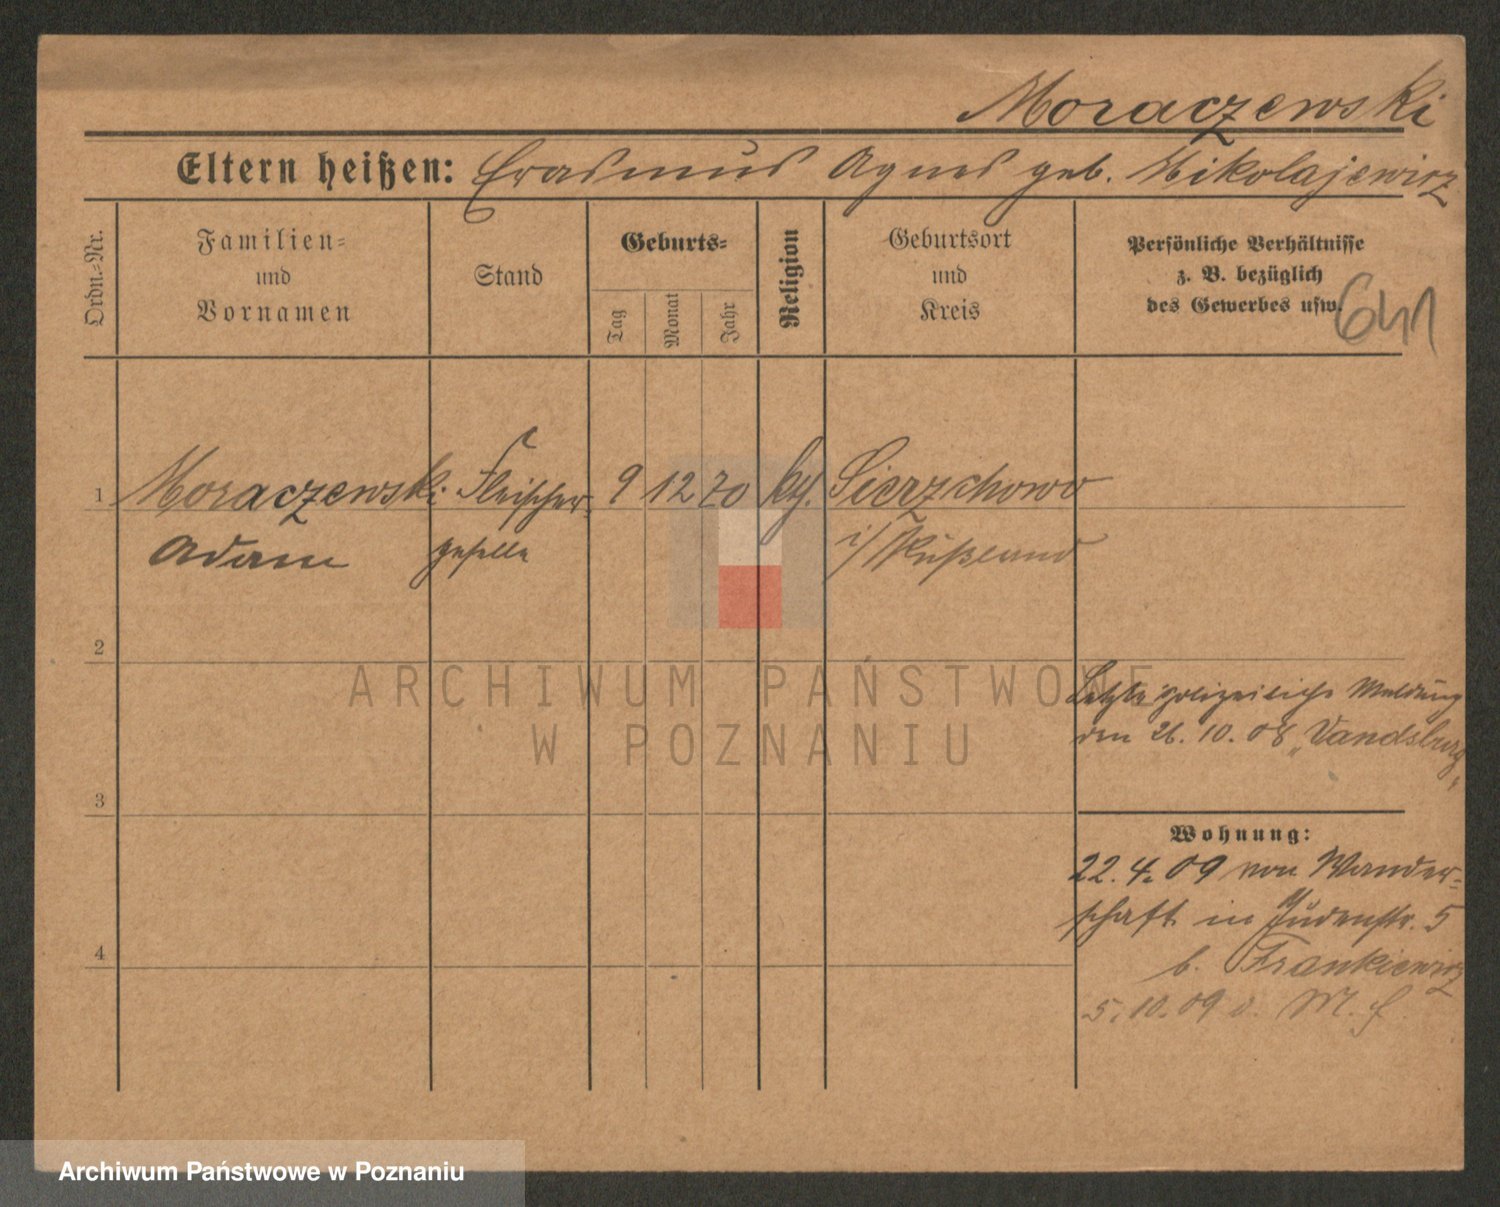 Moraczewski
Eltern heißen: Erasmus Agnes geb. Mikolajewicz
Ordn.-Nr.
Familien-
und
Vornamen
Stand
Geburts-
Tag
Monat
Jahr
Religion
Geburtsort
und
Kreis
Persönliche Verhältnisse
z. B. bezüglich
des Gewerbes usw.
641
1 Moraczewski Fleischer- 9 12 70 kth. Sierzchowo
Adam geselle i/Rußland
2
Letzte polizeiliche Meldung
den 26. 10. 08 „Vandsburg"
3
Wohnung:
22. 4. 09 von Wander-
schaft in Judenstr. 5
4
b. Frankiewicz
5. 10. 09 o. M. f.
ARCHIWUM PAŃSTWOWE
W POZNANIU
Archiwum Państwowe w Poznaniu